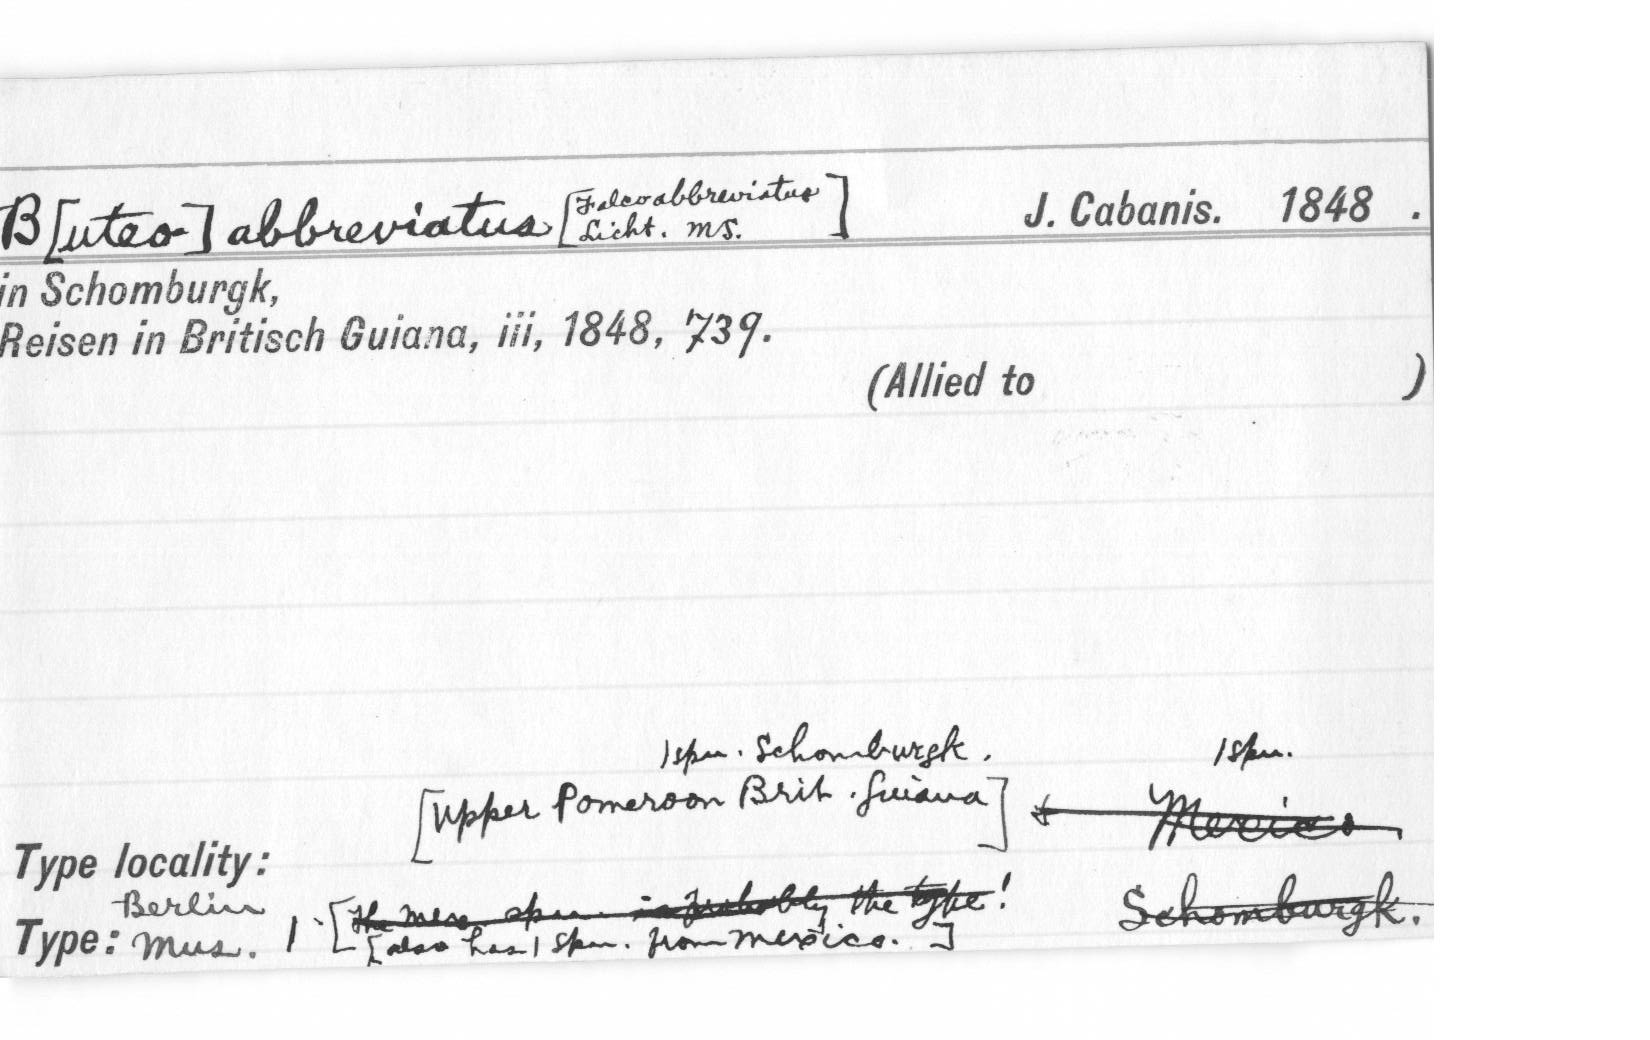 B[uteo] abbreviatus [Falco abbreviatus Licht. MS.] J. Cabanis. 1848 .
in Schomburgk,
Reisen in Britisch Guiana, iii, 1848, 739.
(Allied to )
1 spm. Schomburgk. 1 spm.
[Upper Pomeroon Brit. Guiana] & Mexico
Type locality:
Berlin
Type: Mus. 1. [The Mex. spm. is probably the type! Schomburgk.
[also has 1 spm. from Mexico.]